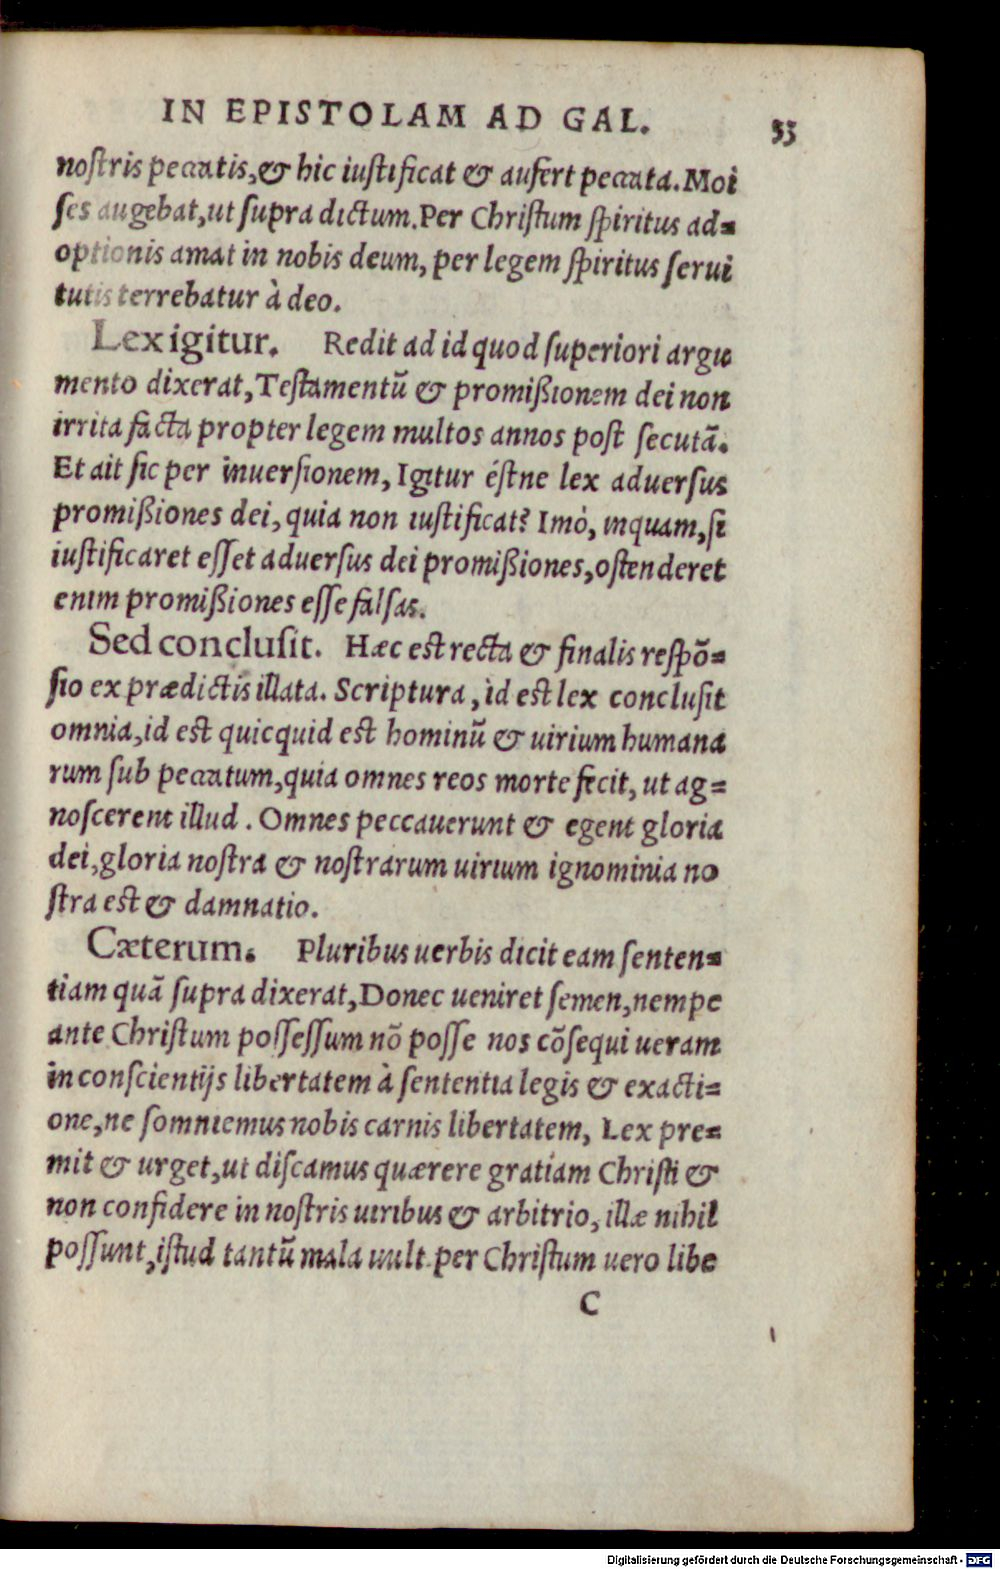 IN EPISTOLAM AD GAL.
33
noſtris peccatis, & hic iuſtificat & aufert peccata. Moi
ſes augebat, ut ſupra dictum. Per Chriſtum ſpiritus ad=
optionis amat in nobis deum, per legem ſpiritus ſerui
tutis terrebatur à deo.
Lex igitur. Redit ad id quod ſuperiori argu
mento dixerat, Teſtamentũ & promißionem dei non
irrita facta propter legem multos annos poſt ſecutã.
Et ait ſic per inuerſionem, Igitur éſtne lex aduerſus
promißiones dei, quia non iuſtificat? Imò, inquam, ſi
iuſtificaret eſſet aduerſus dei promißiones, oſtenderet
enim promißiones eſſe falſas.
Sed concluſit. Hæc eſt recta & finalis reſpõ=
ſio ex prædictis illata. Scriptura, id eſt lex concluſit
omnia, id eſt quicquid eſt hominũ & uirium humana
rum ſub peccatum, quia omnes reos morte fecit, ut ag=
noſcerent illud. Omnes peccauerunt & egent gloria
dei, gloria noſtra & noſtrarum uirium ignominia no
ſtra eſt & damnatio.
Cæterum. Pluribus uerbis dicit eam ſenten=
tiam quã ſupra dixerat, Donec ueniret ſemen, nempe
ante Chriſtum poſſeſſum nõ poſſe nos cõſequi ueram
in conſcientijs libertatem à ſententia legis & exacti=
one, ne ſomniemus nobis carnis libertatem, Lex pre=
mit & urget, ut diſcamus quærere gratiam Chriſti &
non confidere in noſtris uiribus & arbitrio, illæ nihil
poſſunt, iſtud tantũ mala uult. per Chriſtum uero libe
C
Digitalisierung gefördert durch die Deutsche Forschungsgemeinschaft - DFG